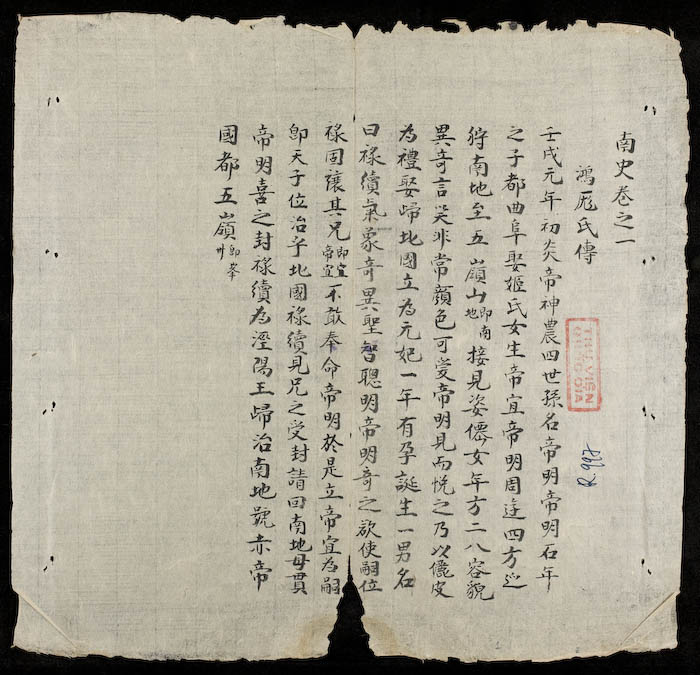 南史卷之一
鴻厖氏傳
壬戌元年初炎帝神農四世孫名帝明帝明石年
之子都曲阜娶姬氏女生帝宜帝明周遊四方巡
狩南地至五嶺山即南地接見姿僊女年方二八容貌
異奇言笑非常顔色可愛帝明見而悅之乃以儷皮
為禮娶歸北國立為元妃一年有孕誕生一男名
曰祿續氣象奇異聖智聰明帝明奇之欲使嗣位
祿固讓其兄即宜帝宜不敢奉命帝明於是立帝宜為嗣
即天子位治乎北國祿續見兄之受封請回南地母貫
帝明喜之封祿續為涇陽王歸治南地號赤帝
國都五嶺即峯州
R.997